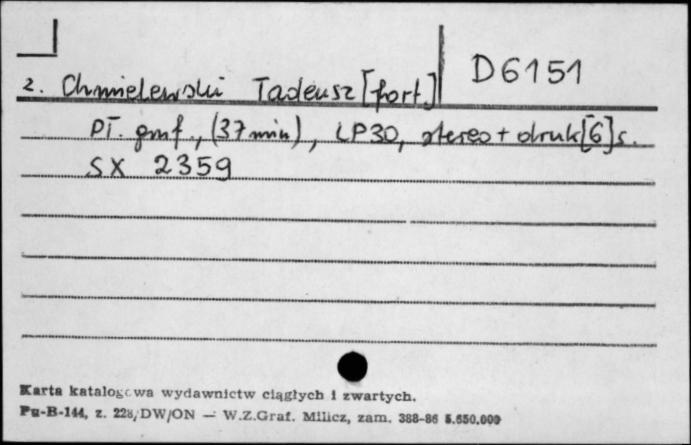 D6151
2. Chmielewski Tadeusz [fort]
Pł. gmf., (37 min), LP30, stereo + druk [6] s.
SX 2359
Karta katalogowa wydawnictw ciągłych i zwartych.
Pu-B-144, z. 228/DW/ON — W.Z.Graf. Milicz, zam. 388-86 5.650.000